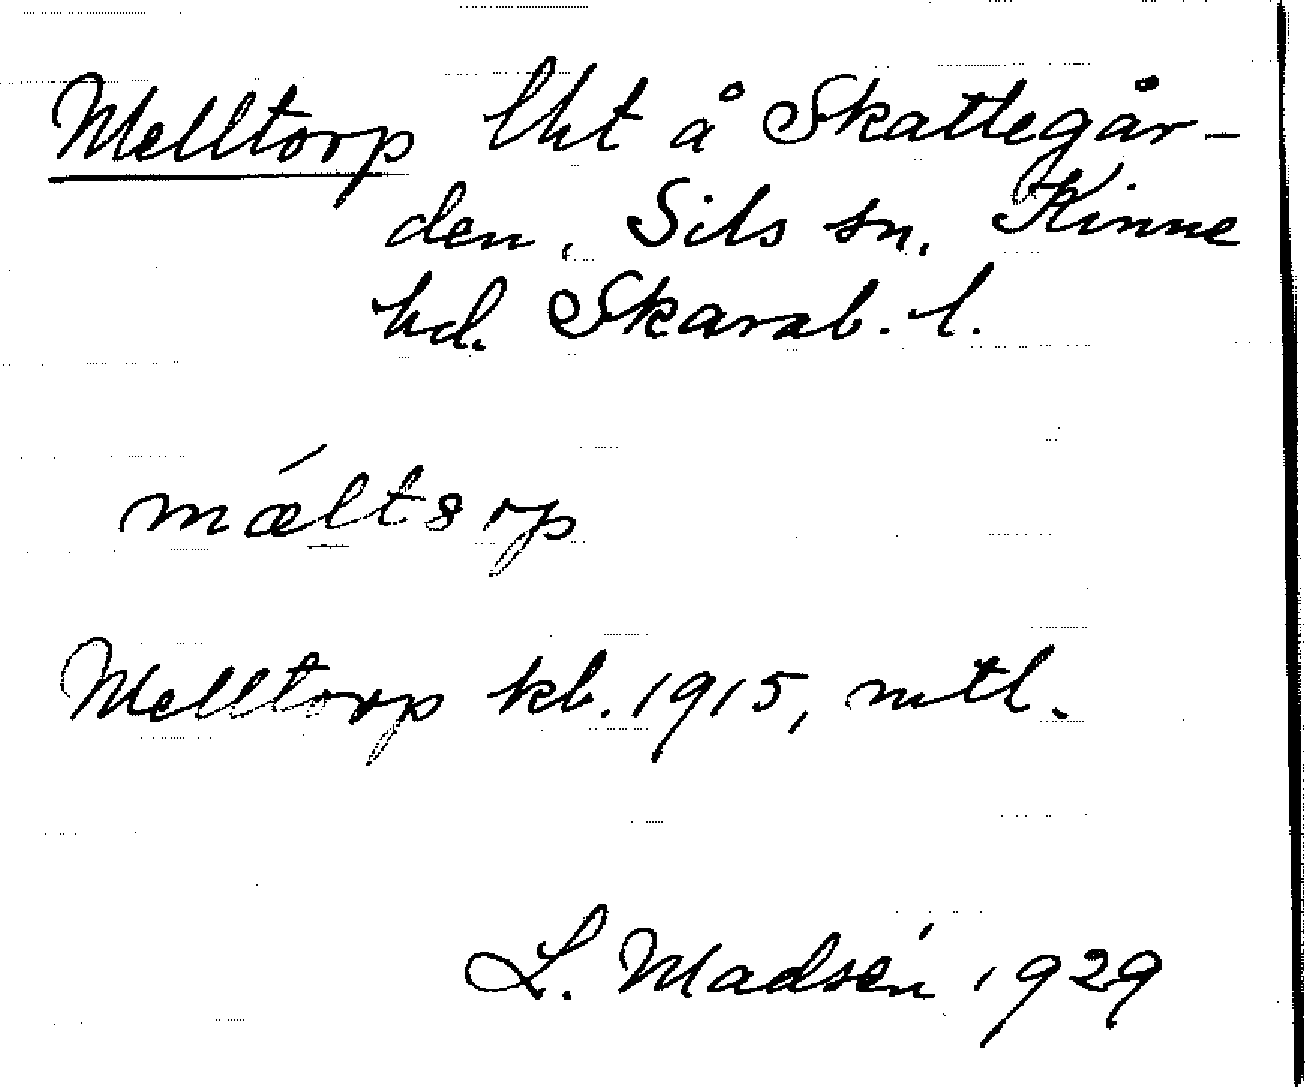 Melltorp lht å Skattegår-
den, Sils sn, Kinne
hd. Skarab. l.
mǽltorp
Melltorp kb. 1915, mtl.
L. Madsén 1929